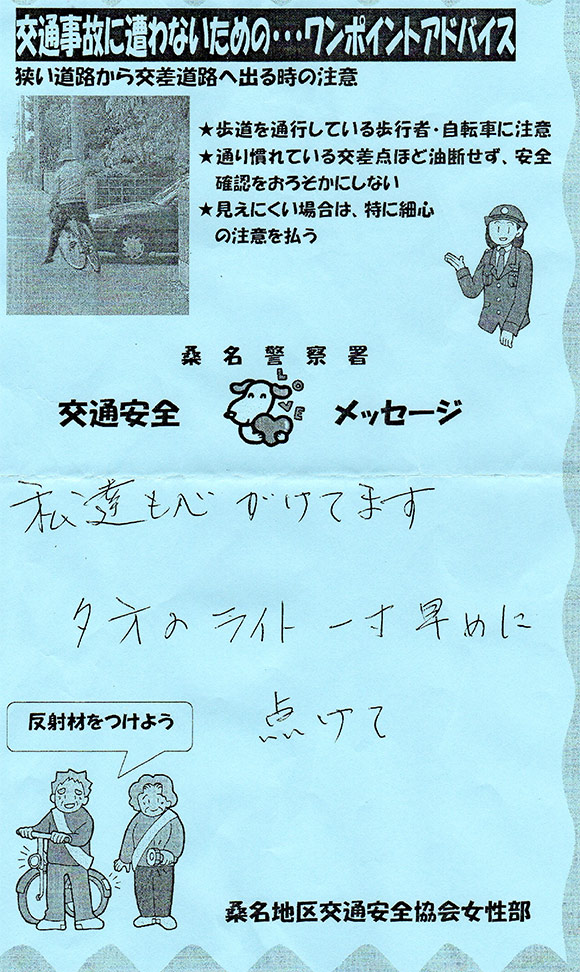 交通事故に遭わないための・・・ワンポイントアドバイス
狭い道路から交差道路へ出る時の注意
★歩道を通行している歩行者・自転車に注意
★通り慣れている交差点ほど油断せず、安全
確認をおろそかにしない
★見えにくい場合は、特に細心
の注意を払う
桑名警察署
交通安全 LOVE メッセージ
私達も心がけてます
夕方のライト一寸早めに
点けて
反射材をつけよう
桑名地区交通安全協会女性部